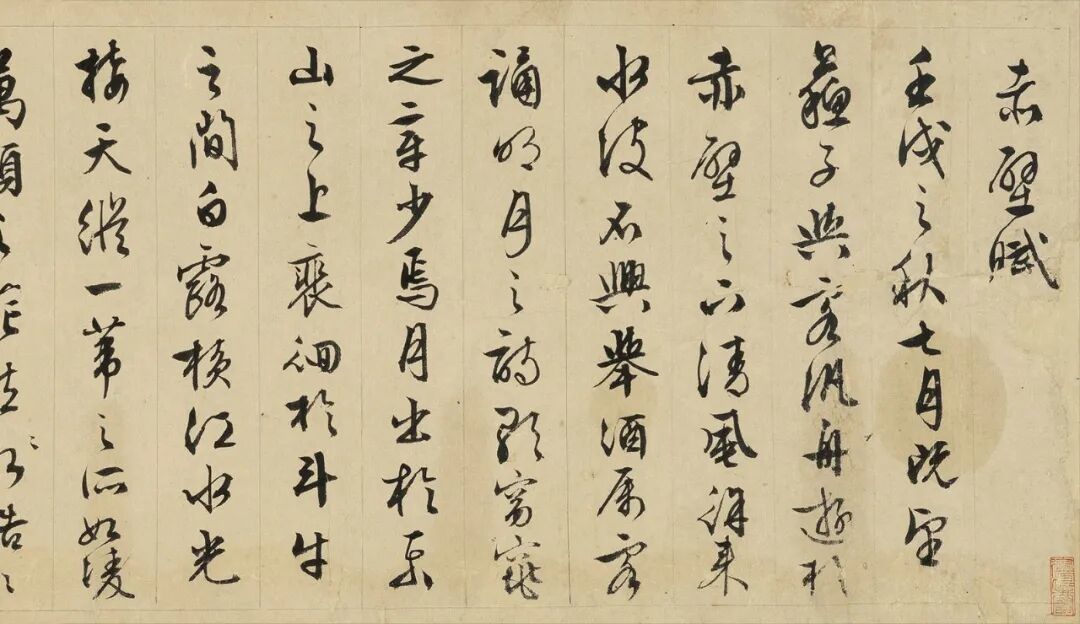 赤壁賦
壬戌之秋七月既望
蘇子與客汎舟遊於
赤壁之下清風徐來
水波不興舉酒属客
誦明月之詩歌窈窕
之章少焉月出於東
山之上裴徊於斗牛
之間白露橫江水光
接天縱一葦之所如凌
萬頃之茫然